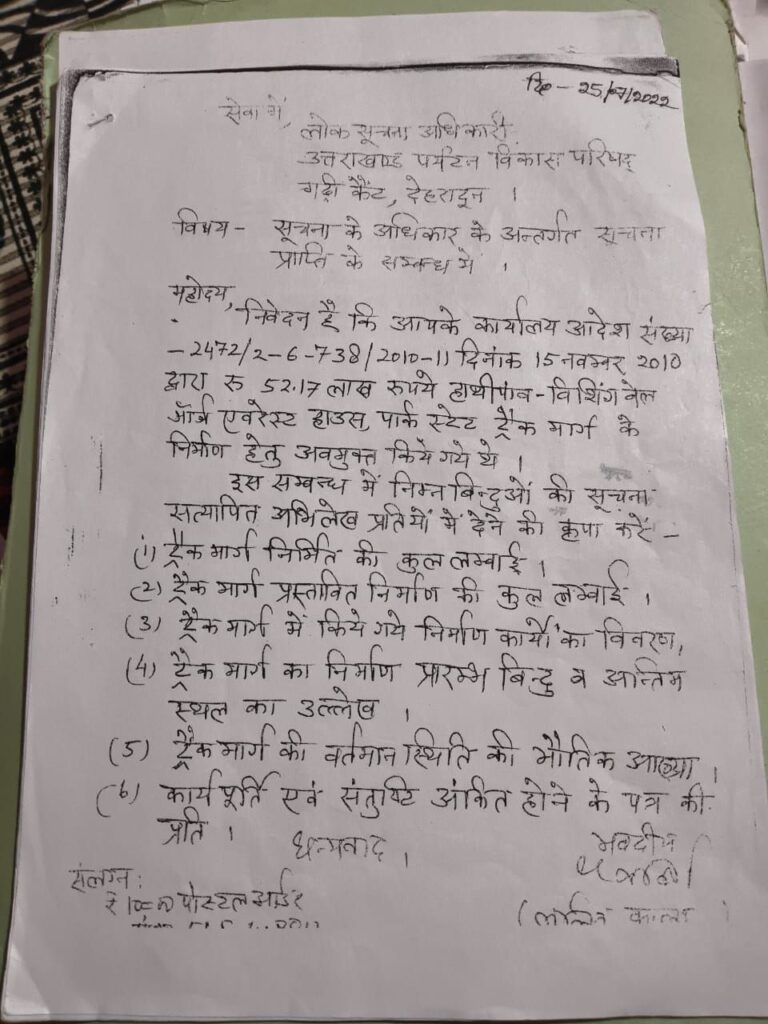 दि० - 25/07/2022
सेवा में,
लोक सूचना अधिकारी
उत्तराखण्ड पर्यटन विकास परिषद्
गढ़ी कैंट, देहरादून ।
विषय - सूचना के अधिकार के अन्तर्गत सूचना
प्राप्ति के सम्बन्ध में ।
महोदय,
निवेदन है कि आपके कार्यालय आदेश संख्या
- 2472/2-6-738/2010-11 दिनांक 15 नवम्बर 2010
द्वारा रु 52.17 लाख रूपये हाथीपांव - विशिंग वेल
जॉर्ज एवरेस्ट हाउस, पार्क स्टेट ट्रैक मार्ग के
निर्माण हेतु अवमुक्त किये गये थे ।
इस सम्बन्ध में निम्न बिन्दुओं की सूचना
सत्यापित अभिलेख प्रतियों में देने की कृपा करें -
(1) ट्रैक मार्ग निर्मित की कुल लम्बाई ।
(2) ट्रैक मार्ग प्रस्तावित निर्माण की कुल लम्बाई ।
(3) ट्रैक मार्ग में किये गये निर्माण कार्यों का विवरण,
(4) ट्रैक मार्ग का निर्माण प्रारम्भ बिन्दु व अन्तिम
स्थल का उल्लेख ।
(5) ट्रैक मार्ग की वर्तमान स्थिति की भौतिक आख्या ।
(6) कार्य पूर्ति एवं संतुष्टि अंकित होने के पत्र की
प्रति ।
धन्यवाद ।
भवदीय
संलग्न :
पोस्टल आर्डर